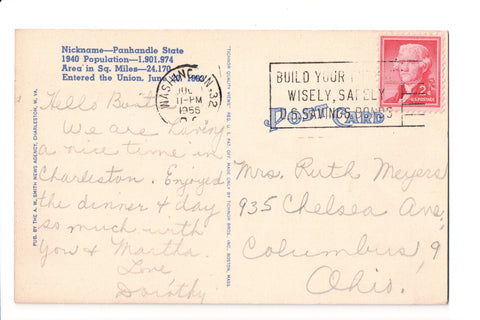 Nickname—Panhandle State
1940 Population—1,901,974
Area in Sq. Miles—24,170
Entered the Union, June
WASHING 32
JUL
11-PM
1956
BUILD YOUR
WISELY, SAFELY
SAVINGS BONDS
2¢
U.S. POSTAGE
POST CARD
Hello
We are having
a nice time in
Charleston. Enjoyed
the dinner & day
so much with
you & Martha.
Love
Dorothy
Mrs. Ruth Meyers
935 Chelsea Ave,
Columbus, 9
Ohio.
PUB. BY THE A. W. SMITH NEWS AGENCY, CHARLESTON, W. VA.
TICHNOR QUALITY VIEWS REG. U.S. PAT. OFF. MADE ONLY BY TICHNOR BROS., INC. BOSTON, MASS.